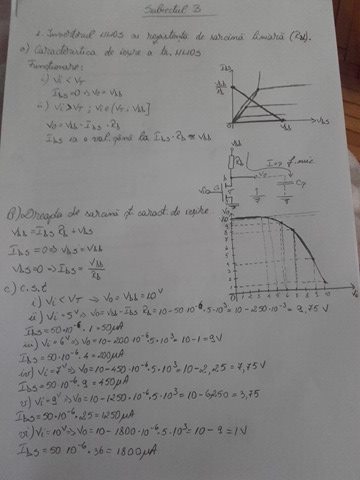 Subiectul 3
1. Inversorul NMOS cu rezistență de sarcină liniară (RD).
a) Caracteristica de ieșire a th. NMOS
Funcționare:
i) Vi < VT
IDS = 0 ⇒ V0 = VDD
ii) Vi > VT ; Vi ∈ (VT, VDD]
V0 = VDD - IDS · RD
IDS ia o val. până la IDS · RD ≅ VDD
IDS
VDD
RD
VDD
VDS
VDD
RD
V0
Vi
G
CP
b) Dreapta de sarcină pt caract. de ieșire.
VDD = IDS RD + VDS
IDS = 0 ⇒ VDS = VDD
VDS = 0 ⇒ IDS = VDD/RD
V0
10
9
8
7
6
5
4
3
2
1
0 1 2 3 4 5 6 7 8 9 10
Vi
c) C.S.T
i) Vi < VT ⇒ V0 = VDD = 10V
ii) Vi = 5V ⇒ V0 = VDD - IDS RD = 10 - 50·10^-6 · 5·10^3 = 10 - 250·10^-3 = 9,75V
IDS = 50·10^-6 · 1 = 50μA
iii) Vi = 6V ⇒ V0 = 10 - 200·10^-6 · 5·10^3 = 10 - 1 = 9V
IDS = 50·10^-6 · 4 = 200μA
iv) Vi = 7V ⇒ V0 = 10 - 450·10^-6 · 5·10^3 = 10 - 2,25 = 7,75V
IDS = 50·10^-6 · 9 = 450μA
v) Vi = 9V ⇒ V0 = 10 - 1250·10^-6 · 5·10^3 = 10 - 6,250 = 3,75
IDS = 50·10^-6 · 25 = 1250μA
vi) Vi = 10V ⇒ V0 = 10 - 1800·10^-6 · 5·10^3 = 10 - 9 = 1V
IDS = 50·10^-6 · 36 = 1800μA